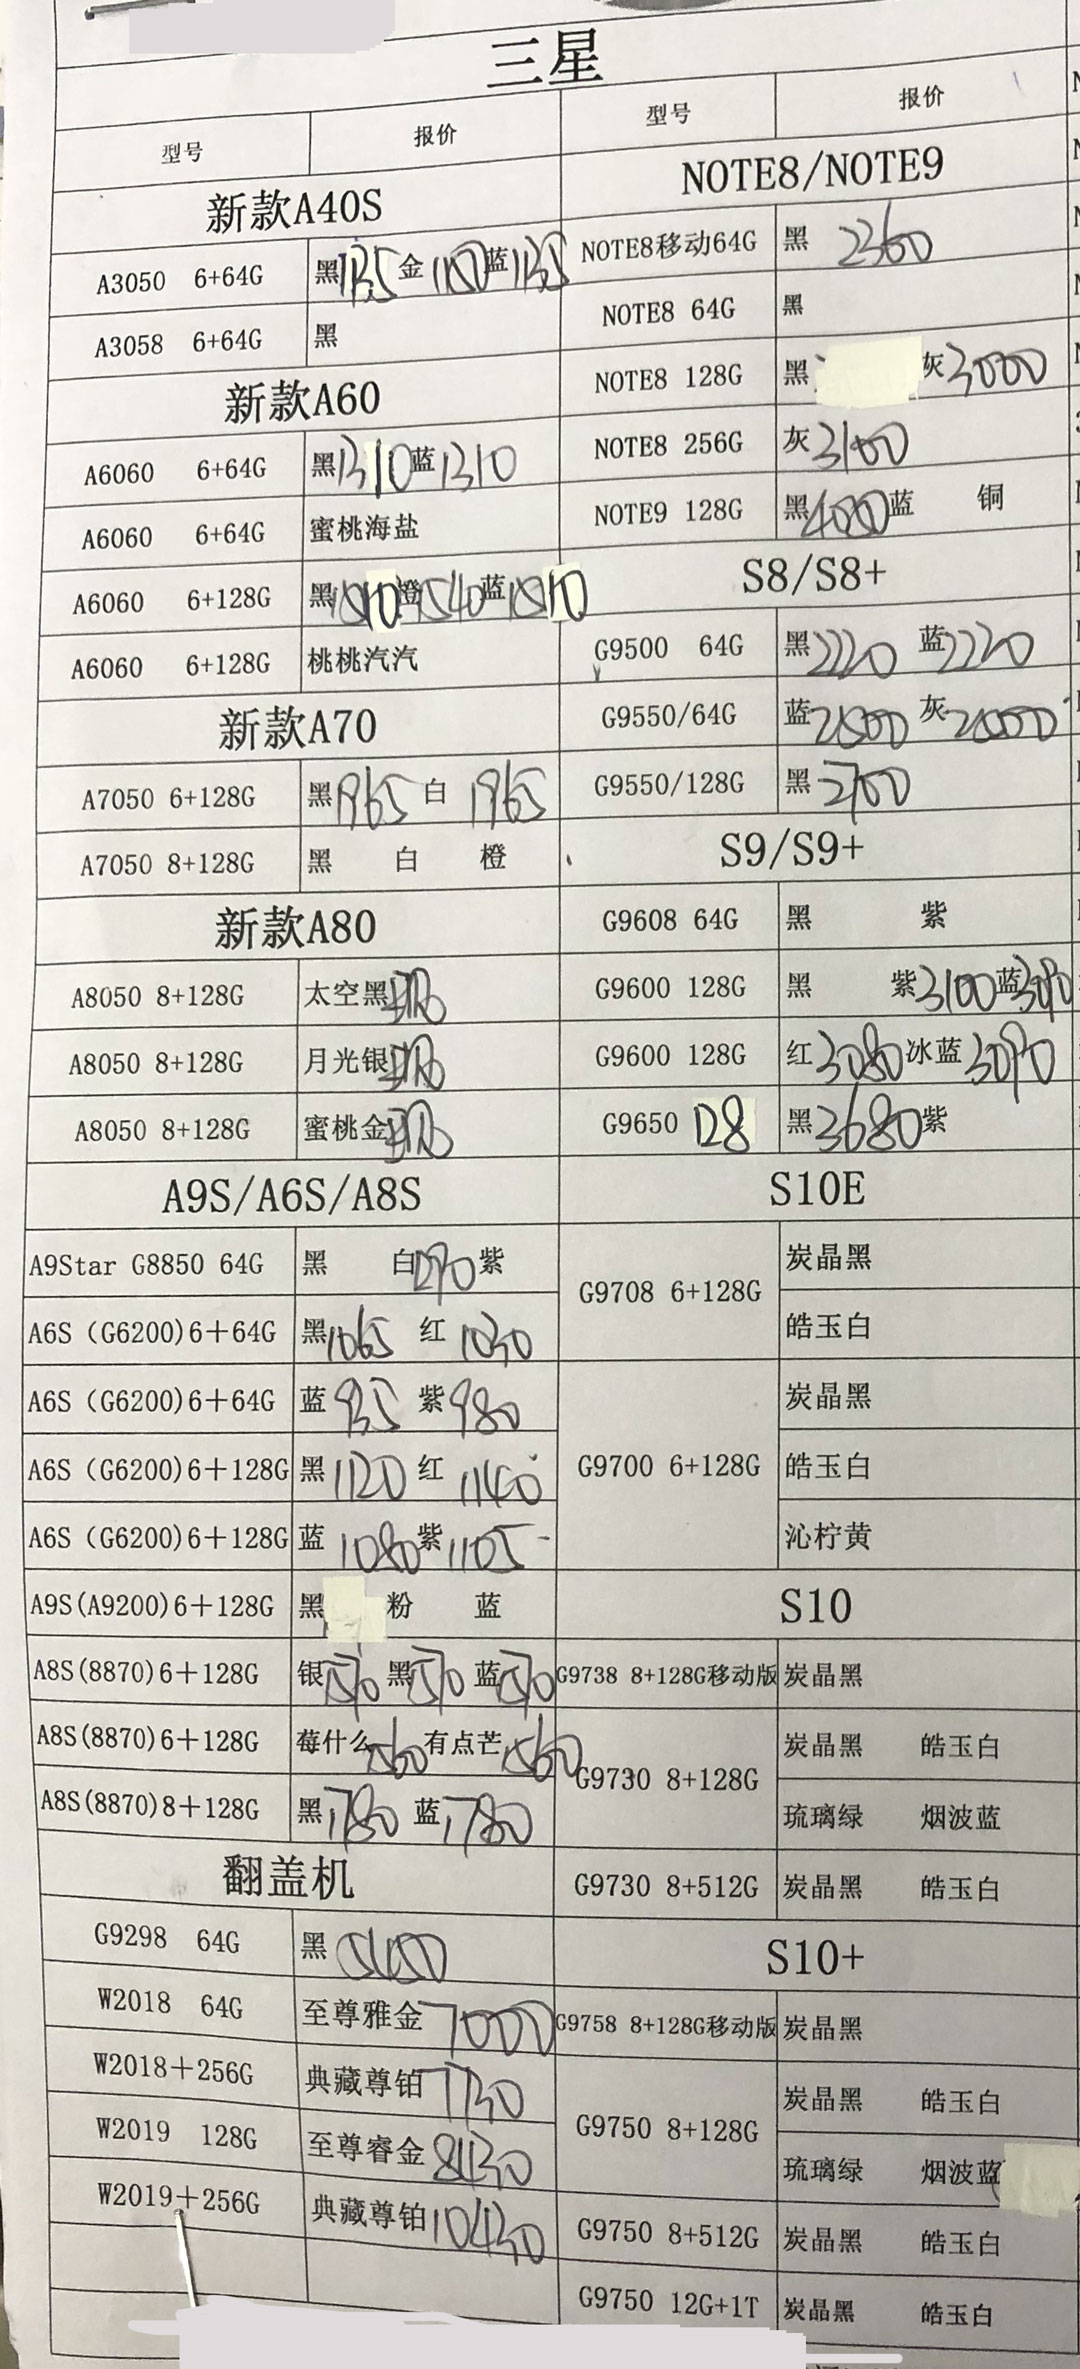 三星
型号 报价
新款A40S
A3050 6+64G 黑1135 金1150 蓝1135
A3058 6+64G 黑
新款A60
A6060 6+64G 黑1310 蓝1310
A6060 6+64G 蜜桃海盐
A6060 6+128G 黑1510 橙1540 蓝1510
A6060 6+128G 桃桃汽汽
新款A70
A7050 6+128G 黑1965 白1965
A7050 8+128G 黑 白 橙
新款A80
A8050 8+128G 太空黑
A8050 8+128G 月光银
A8050 8+128G 蜜桃金
A9S/A6S/A8S
A9Star G8850 64G 黑 白1290 紫
A6S（G6200)6+64G 黑1065 红1030
A6S（G6200)6+64G 蓝935 紫980
A6S（G6200)6+128G 黑1120 红1140
A6S（G6200)6+128G 蓝1080 紫1105
A9S(A9200)6+128G 黑 粉 蓝
A8S(8870)6+128G 银1570 黑1570 蓝1570
A8S(8870)6+128G 莓什么1560 有点芒1560
A8S(8870)8+128G 黑1780 蓝1780
翻盖机
G9298 64G 黑
W2018 64G 至尊雅金7000
W2018+256G 典藏尊铂7730
W2019 128G 至尊睿金8430
W2019+256G 典藏尊铂10430
型号 报价
NOTE8/NOTE9
NOTE8移动64G 黑 2360
NOTE8 64G 黑
NOTE8 128G 黑 灰3000
NOTE8 256G 灰3100
NOTE9 128G 黑4000 蓝 铜
S8/S8+
G9500 64G 黑2220 蓝2220
G9550/64G 蓝2500 灰2500
G9550/128G 黑2700
S9/S9+
G9608 64G 黑 紫
G9600 128G 黑 紫3100 蓝3090
G9600 128G 红3080 冰蓝3090
G9650 128 黑3680 紫
S10E
G9708 6+128G 炭晶黑
皓玉白
G9700 6+128G 炭晶黑
皓玉白
沁柠黄
S10
G9738 8+128G移动版 炭晶黑
G9730 8+128G 炭晶黑 皓玉白
琉璃绿 烟波蓝
G9730 8+512G 炭晶黑 皓玉白
S10+
G9758 8+128G移动版 炭晶黑
G9750 8+128G 炭晶黑 皓玉白
琉璃绿 烟波蓝
G9750 8+512G 炭晶黑 皓玉白
G9750 12G+1T 炭晶黑 皓玉白